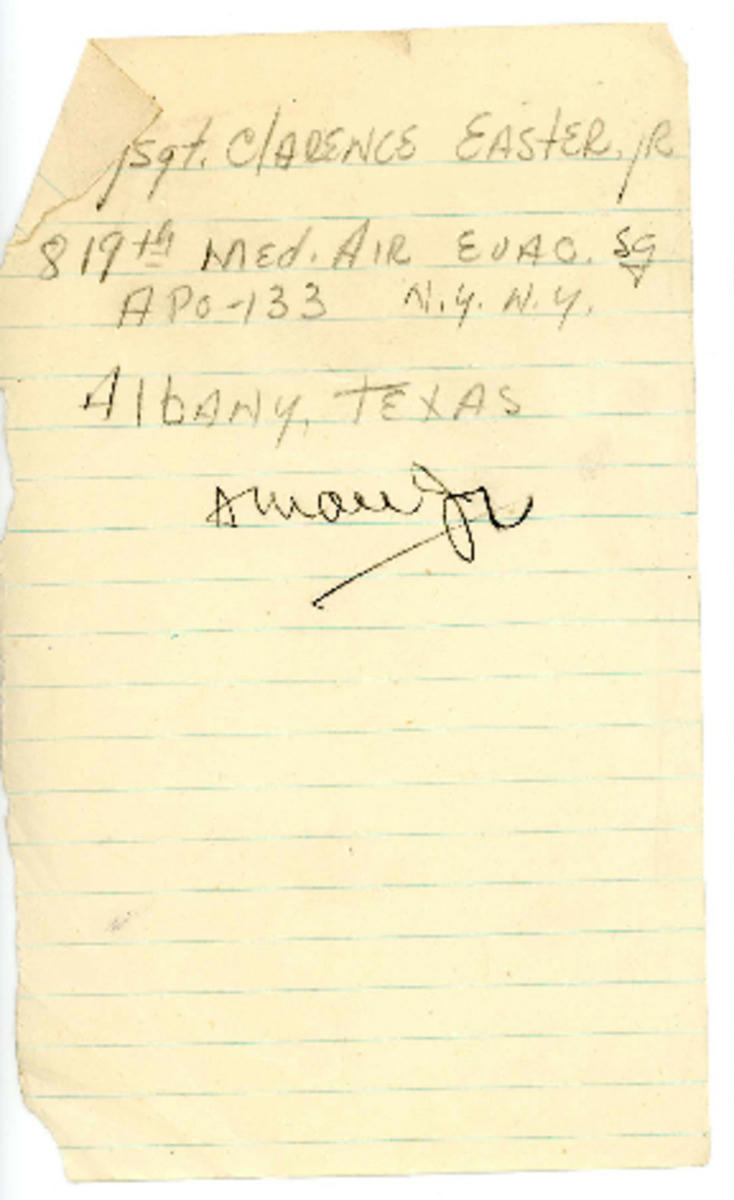 Sgt. ClARENCE EASTER. JR
819th MEd. AIR EVAC. Sq
APO-133 N.Y. N.Y.
AlbANY, TEXAS
Jr